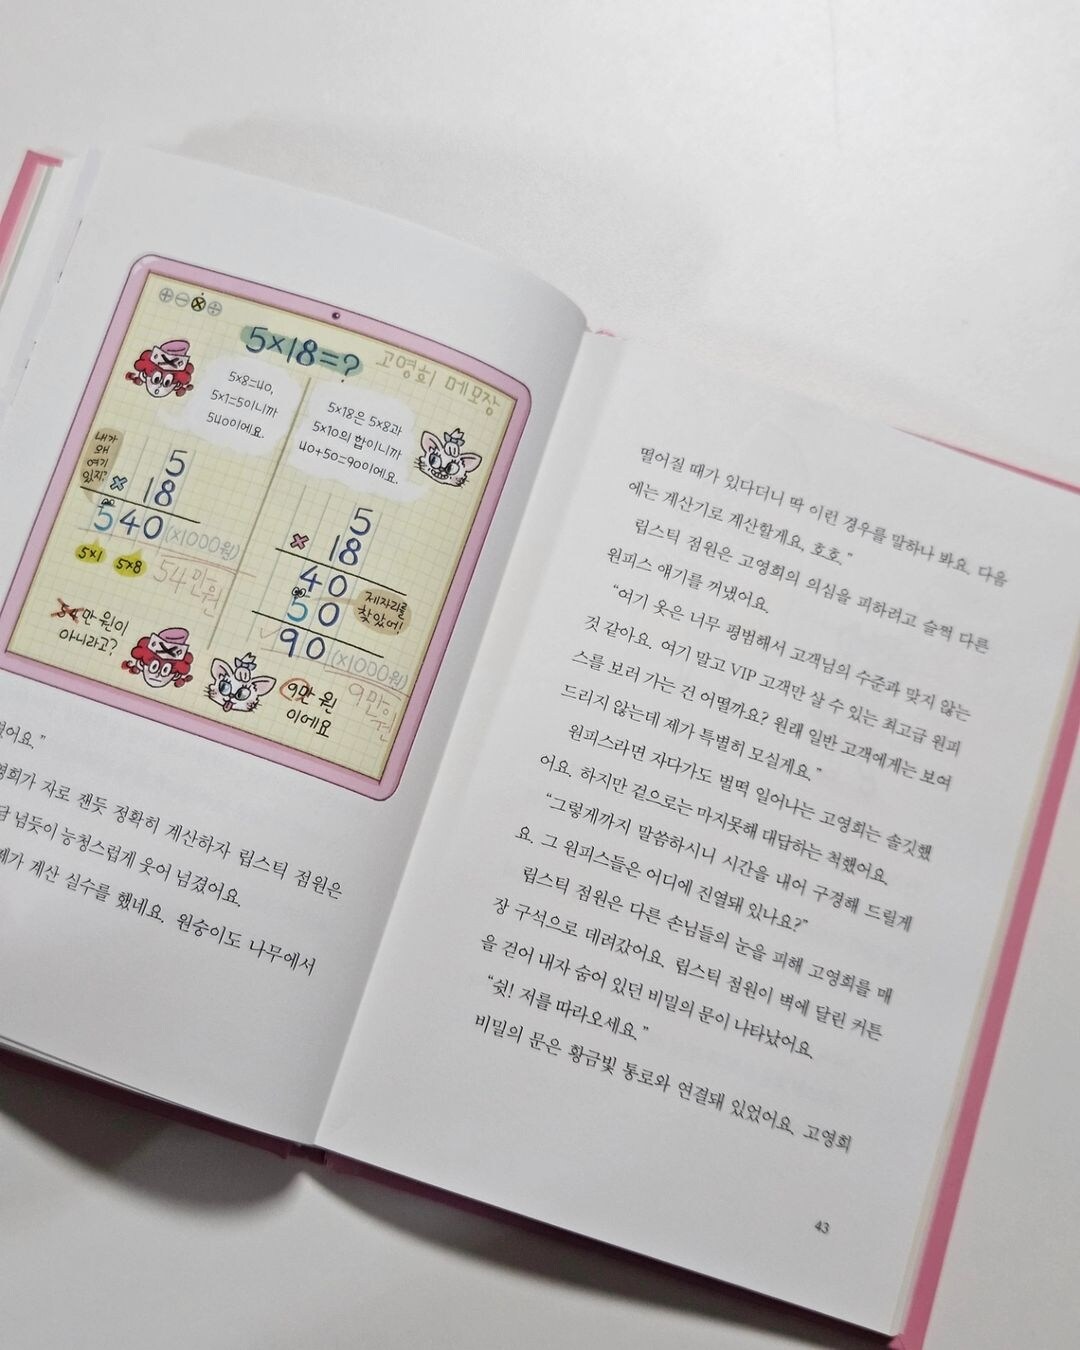 5×18=?
고영희 메모장
5×8=40,
5×1=5이니까
540이에요.
5×18은 5×8과
5×10의 합이니까
40+50=90이에요.
내가
왜
여기
있지?
5
× 18
540 (×1000원)
5×1 5×8
54만원
54만 원이
아니라고?
5
× 18
40
50
제자리를
찾았어!
90 (×1000원)
9만원
9만 원
이에요
어요.”
영희가 자로 잰듯 정확히 계산하자 립스틱 점원은
넘듯이 능청스럽게 웃어 넘겼어요.
제가 계산 실수를 했네요. 원숭이도 나무에서
떨어질 때가 있다더니 딱 이런 경우를 말하나 봐요. 다음
에는 계산기로 계산할게요, 호호.”
립스틱 점원은 고영희의 의심을 피하려고 슬쩍 다른
원피스 얘기를 꺼냈어요.
“여기 옷은 너무 평범해서 고객님의 수준과 맞지 않는
것 같아요. 여기 말고 VIP 고객만 살 수 있는 최고급 원피
스를 보러 가는 건 어떨까요? 원래 일반 고객에게는 보여
드리지 않는데 제가 특별히 모실게요.”
원피스라면 자다가도 벌떡 일어나는 고영희는 솔깃했
어요. 하지만 겉으로는 마지못해 대답하는 척했어요.
“그렇게까지 말씀하시니 시간을 내어 구경해 드릴게
요. 그 원피스들은 어디에 진열돼 있나요?”
립스틱 점원은 다른 손님들의 눈을 피해 고영희를 매
장 구석으로 데려갔어요. 립스틱 점원이 벽에 달린 커튼
을 걷어 내자 숨어 있던 비밀의 문이 나타났어요.
“쉿! 저를 따라오세요.”
비밀의 문은 황금빛 통로와 연결돼 있었어요. 고영희
43